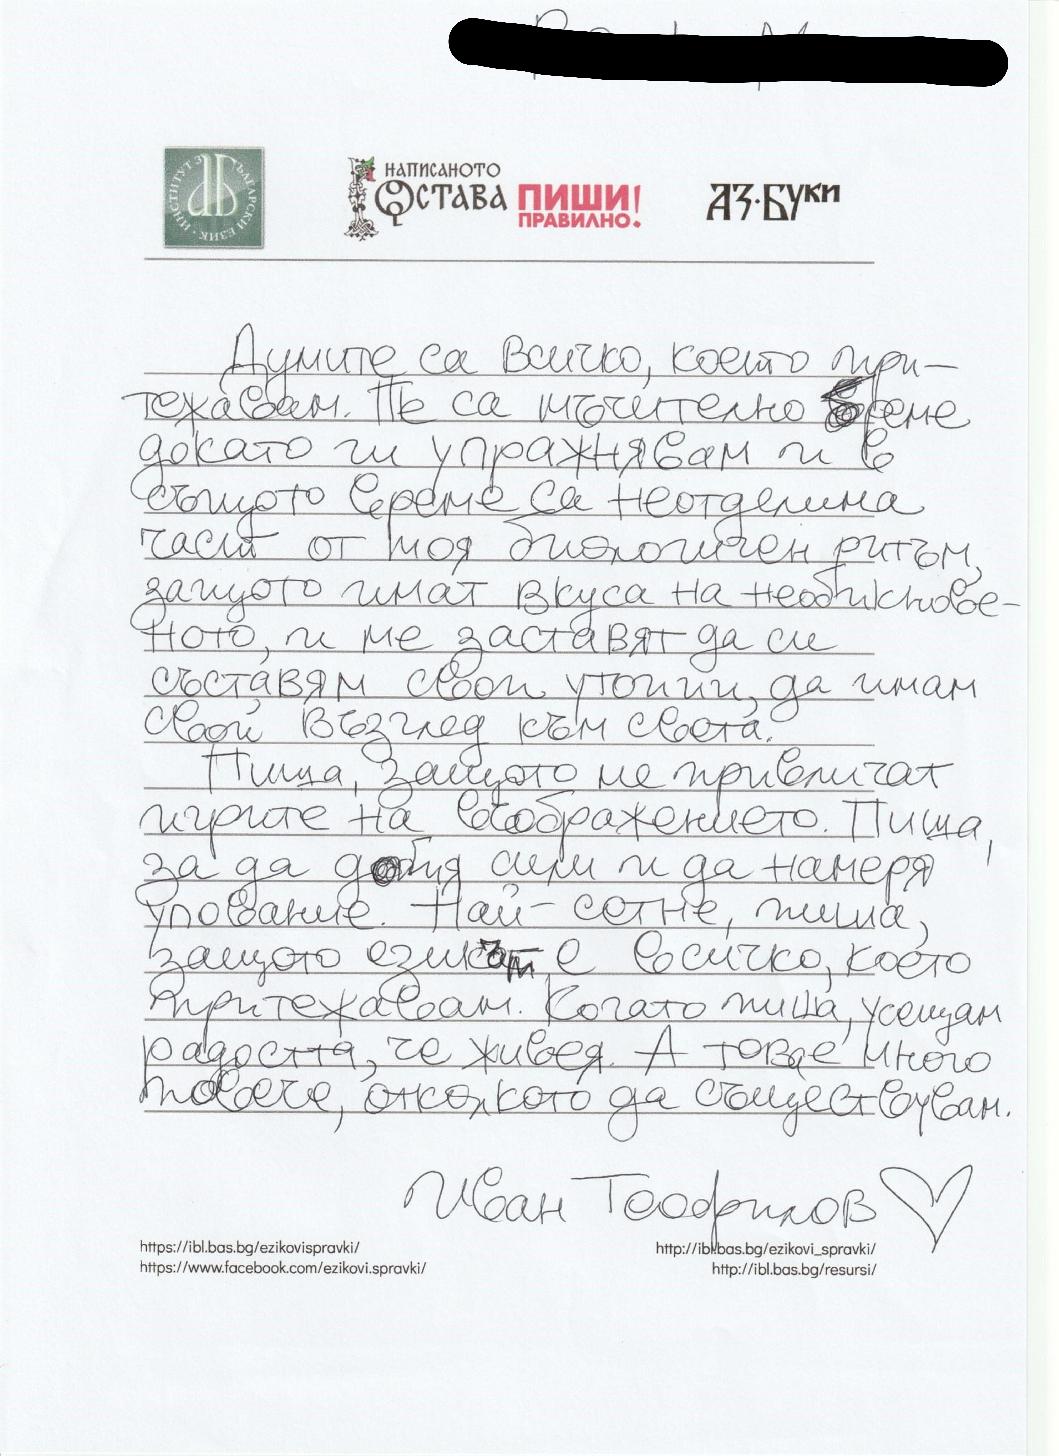 ИНСТИТУТ ЗА БЪЛГАРСКИ ЕЗИК
НАПИСАНОТО
ОСТАВА ПИШИ!
ПРАВИЛНО!
АЗ·БУКИ
Думите са всичко, което при-
тежавам. Те са мъчително бреме
докато ги упражнявам и в
същото време са неотделима
част от моя биологичен ритъм,
защото имат вкуса на необикнове-
ното, и ме заставят да си
съставям свои утопии, да имам
свой възглед към света.
Пиша, защото ме привличат
игрите на въображението. Пиша,
за да добия сили и да намеря
упование. Най-сотне, пиша,
защото езикът е всичко, което
притежавам. Когато пиша, усещам
радостта, че живея. А това е много
повече, отколкото да съществувам.
Иван Теофилов
https://ibl.bas.bg/ezikovispravki/ http://ibl.bas.bg/ezikovi_spravki/
https://www.facebook.com/ezikovi.spravki/ http://ibl.bas.bg/resursi/